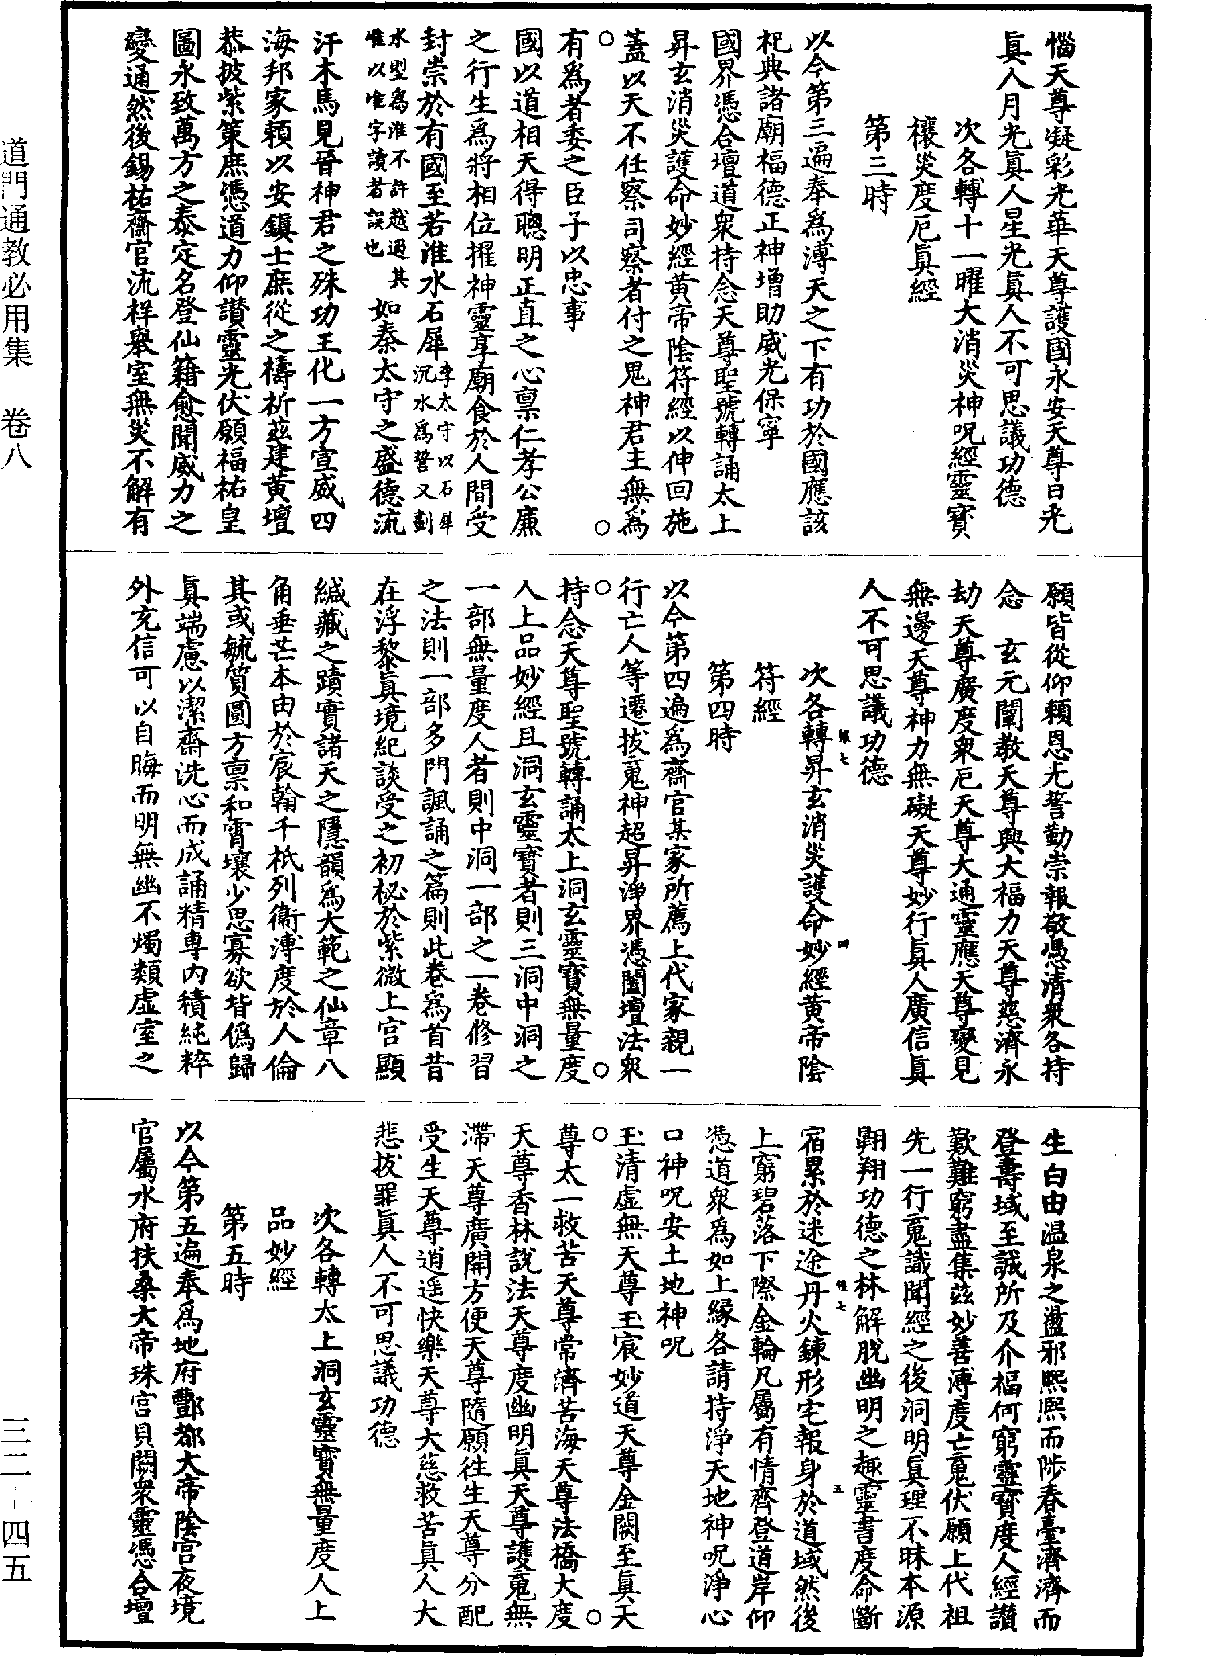 惱天尊凝彩光華天尊護國永安天尊日光
眞人月光眞人星光眞人不可思議功德
次各轉十一曜大消災神呪經靈寶
禳災度厄眞經
第三時
以今第三遍奉爲溥天之下有功於國應該
祀典諸廟福德正神增助威光保寧
國界憑合壇道衆持念天尊聖號轉誦太上
昇玄消災護命妙經黃帝陰符經以伸回施
蓋以天不任察司察者付之鬼神君主無爲
有爲者委之臣子以忠事
國以道相天得聰明正直之心禀仁孝公廉
之行生爲將相位擢神靈享廟食於人間受
封崇於有國至若淮水石犀李太守以石犀沉水爲誓又劃
水則爲淮不許越過其淮以准字讀者誤也如秦太守之盛德流
汗木馬見晉神君之殊功王化一方宣威四
海邦家賴以安鎭士庶從之禱祈茲建黃壇
恭披紫策庶憑道力仰讚靈光伏願福祐皇
圖永致萬方之泰定名登仙籍愈聞威力之
變通然後錫祐齋官流祥舉室無災不解有
願皆從仰賴恩尤誓勤崇報敬憑清衆各持
念　玄元闡教天尊興大福力天尊慈濟永
劫天尊廣度衆厄天尊大通靈應天尊變見
無邊天尊神力無礙天尊妙行眞人廣信眞
人不可思議功德
次各轉昇玄消災護命妙經黃帝陰
符經
第四時
以今第四遍爲齋官某家所薦上代家親一
行亡人等遷拔冤神超昇淨界憑闔壇法衆
持念天尊聖號轉誦太上洞玄靈寶無量度
人上品妙經且洞玄靈寶者則三洞中洞之
一部無量度人者則中洞一部之一卷修習
之法則一部多門諷誦之篇則此卷爲首昔
在浮黎眞境紀談受之初祕於紫微上宮顯
緘藏之蹟實諸天之隱韻爲大範之仙章八
角垂芒本由於宸翰千祇列衞溥度於人倫
其或毓質圓方禀和霄壤少思寡欲背僞歸
眞端慮以潔齋洗心而成誦精專內積純粹
外充信可以自晦而明無幽不燭類虛室之
生白由温泉之盪邪熙熙而陟春臺濟濟而
登壽域至誠所及介福何窮靈寶度人經讚
歎難窮盡集茲妙善溥度亡冤伏願上代祖
先一行冤識聞經之後洞明眞理不昧本源
翺翔功德之林解脫幽明之趣靈書度命斷
宿累於迷途丹火鍊形宅報身於道域然後
上窮碧落下際金輪凡屬有情齊登道岸仰
憑道衆爲如上緣各請持淨天地神呪淨心
口神呪安土地神呪
玉清虛無天尊玉宸妙道天尊金闕至眞天
尊太一救苦天尊常濟苦海天尊法橋大度
天尊香林說法天尊度幽明眞天尊護冤無
滯天尊廣開方便天尊隨願往生天尊分配
受生天尊逍遥快樂天尊大慈救苦眞人大
悲拔罪眞人不可思議功德
次各轉太上洞玄靈寶無量度人上
品妙經
第五時
以今第五遍奉爲地府酆都大帝陰宮夜境
官屬水府扶桑大帝珠宮貝闕衆靈憑合壇
道門通教必用集　卷八
三二－四五